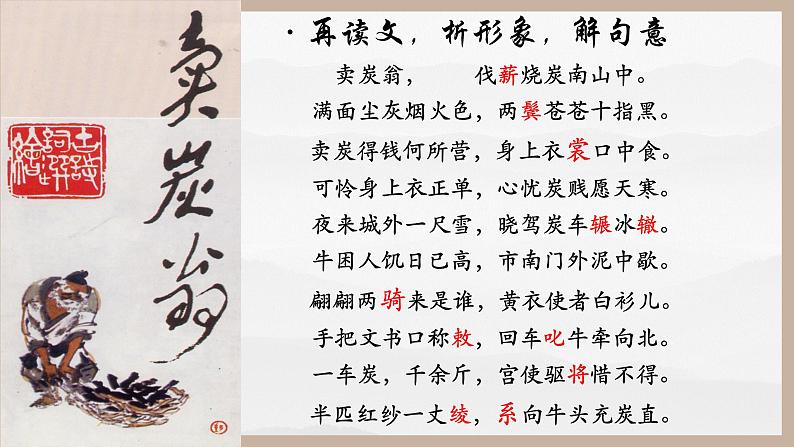 卖炭翁
古诗词选绘
·再读文，析形象，解句意
卖炭翁，伐薪烧炭南山中。
满面尘灰烟火色，两鬓苍苍十指黑。
卖炭得钱何所营，身上衣裳口中食。
可怜身上衣正单，心忧炭贱愿天寒。
夜来城外一尺雪，晓驾炭车辗冰辙。
牛困人饥日已高，市南门外泥中歇。
翩翩两骑来是谁，黄衣使者白衫儿。
手把文书口称敕，回车叱牛牵向北。
一车炭，千余斤，宫使驱将惜不得。
半匹红纱一丈绫，系向牛头充炭直。